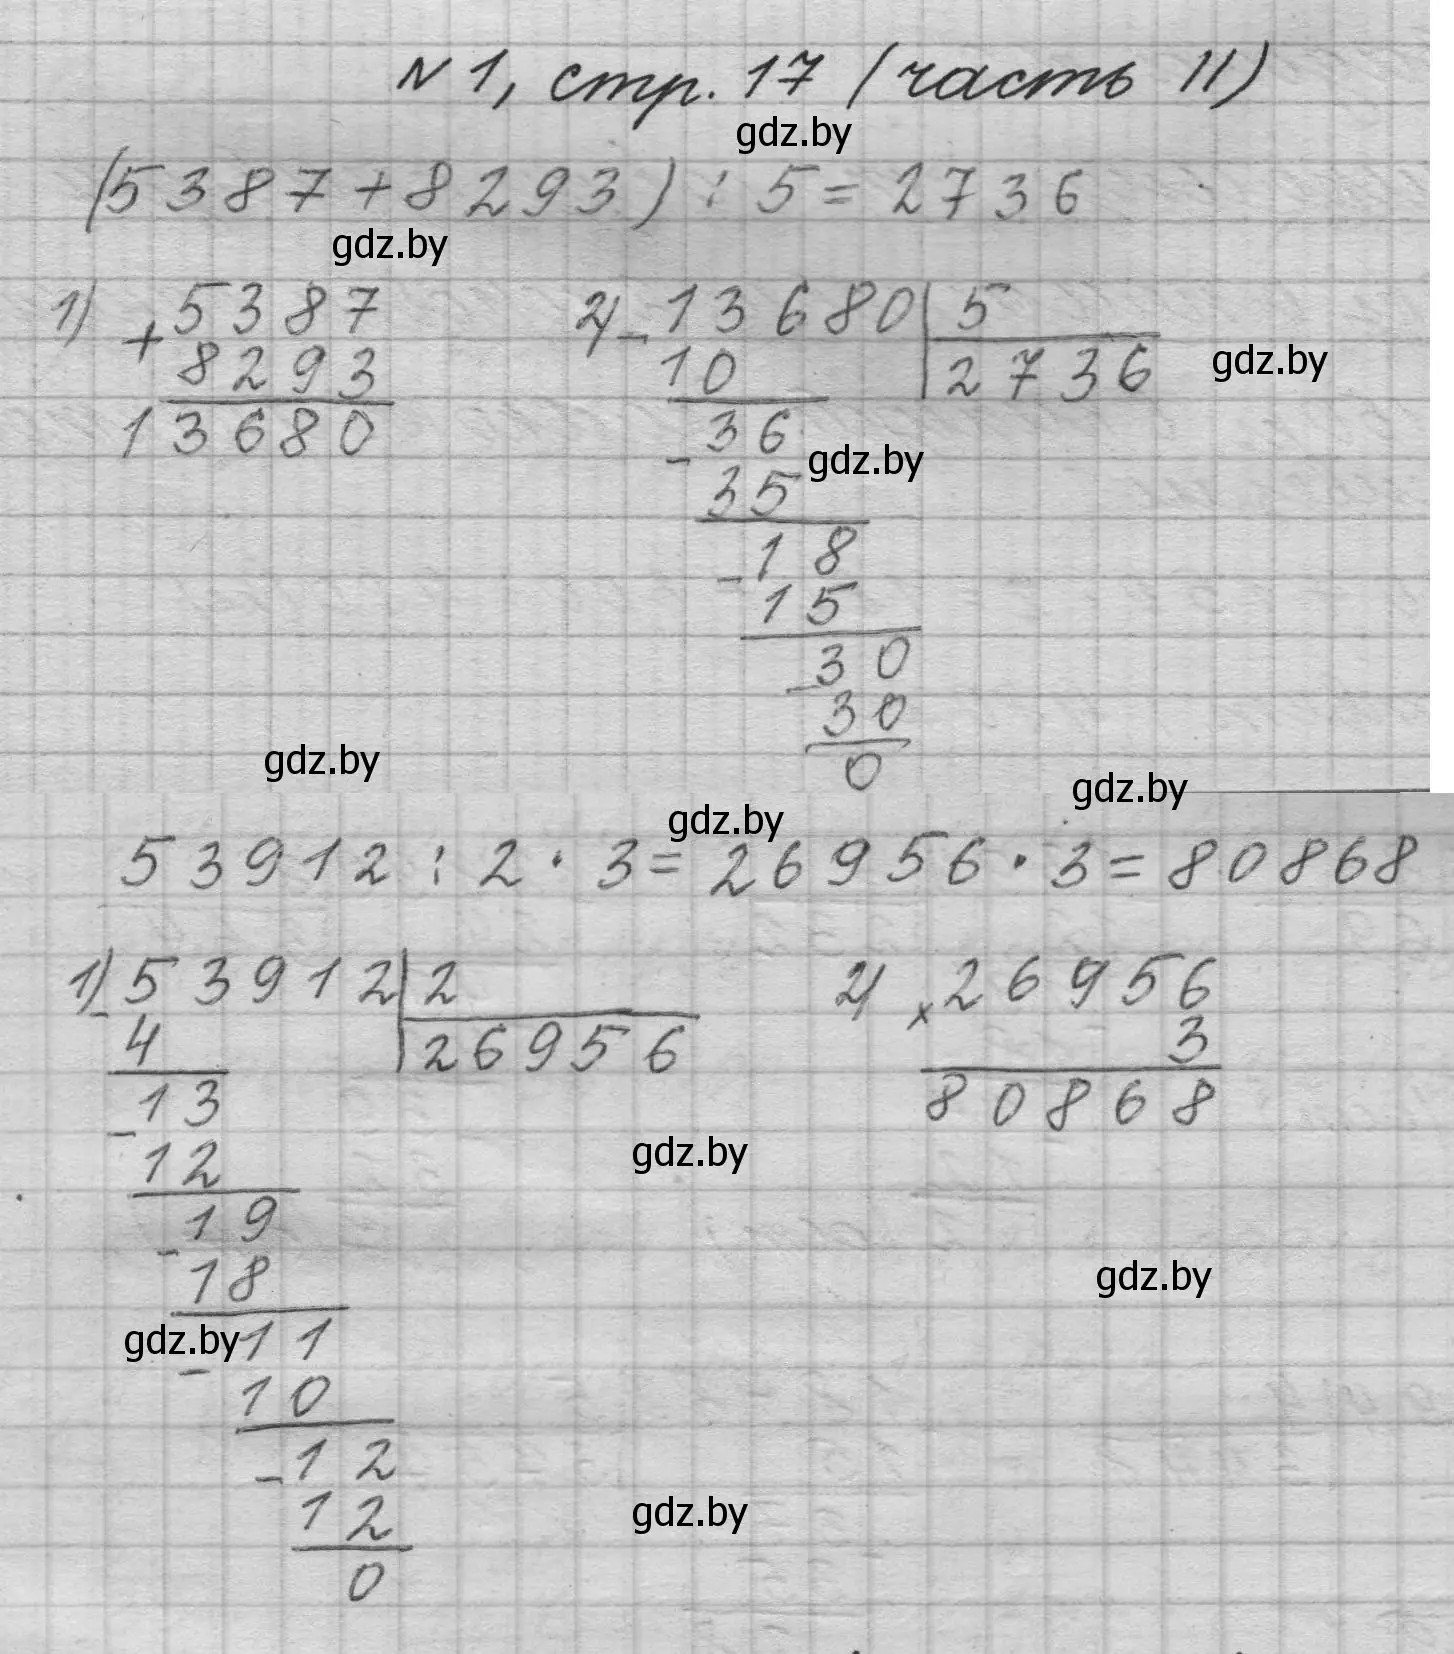 №1, стр. 17 (часть II)
gdz.by
(5387+8293) : 5 = 2736
gdz.by
1) + 5387
8293
13680
2) - 13680 | 5
10 | 2736
gdz.by
- 36
gdz.by
35
- 18
15
- 30
30
0
gdz.by
gdz.by
gdz.by
53912 : 2 · 3 = 26956 · 3 = 80868
1) - 53912 | 2
4 | 26956
- 13
12
- 19
18
gdz.by
- 11
10
- 12
12
0
2) × 26956
3
80868
gdz.by
gdz.by
gdz.by